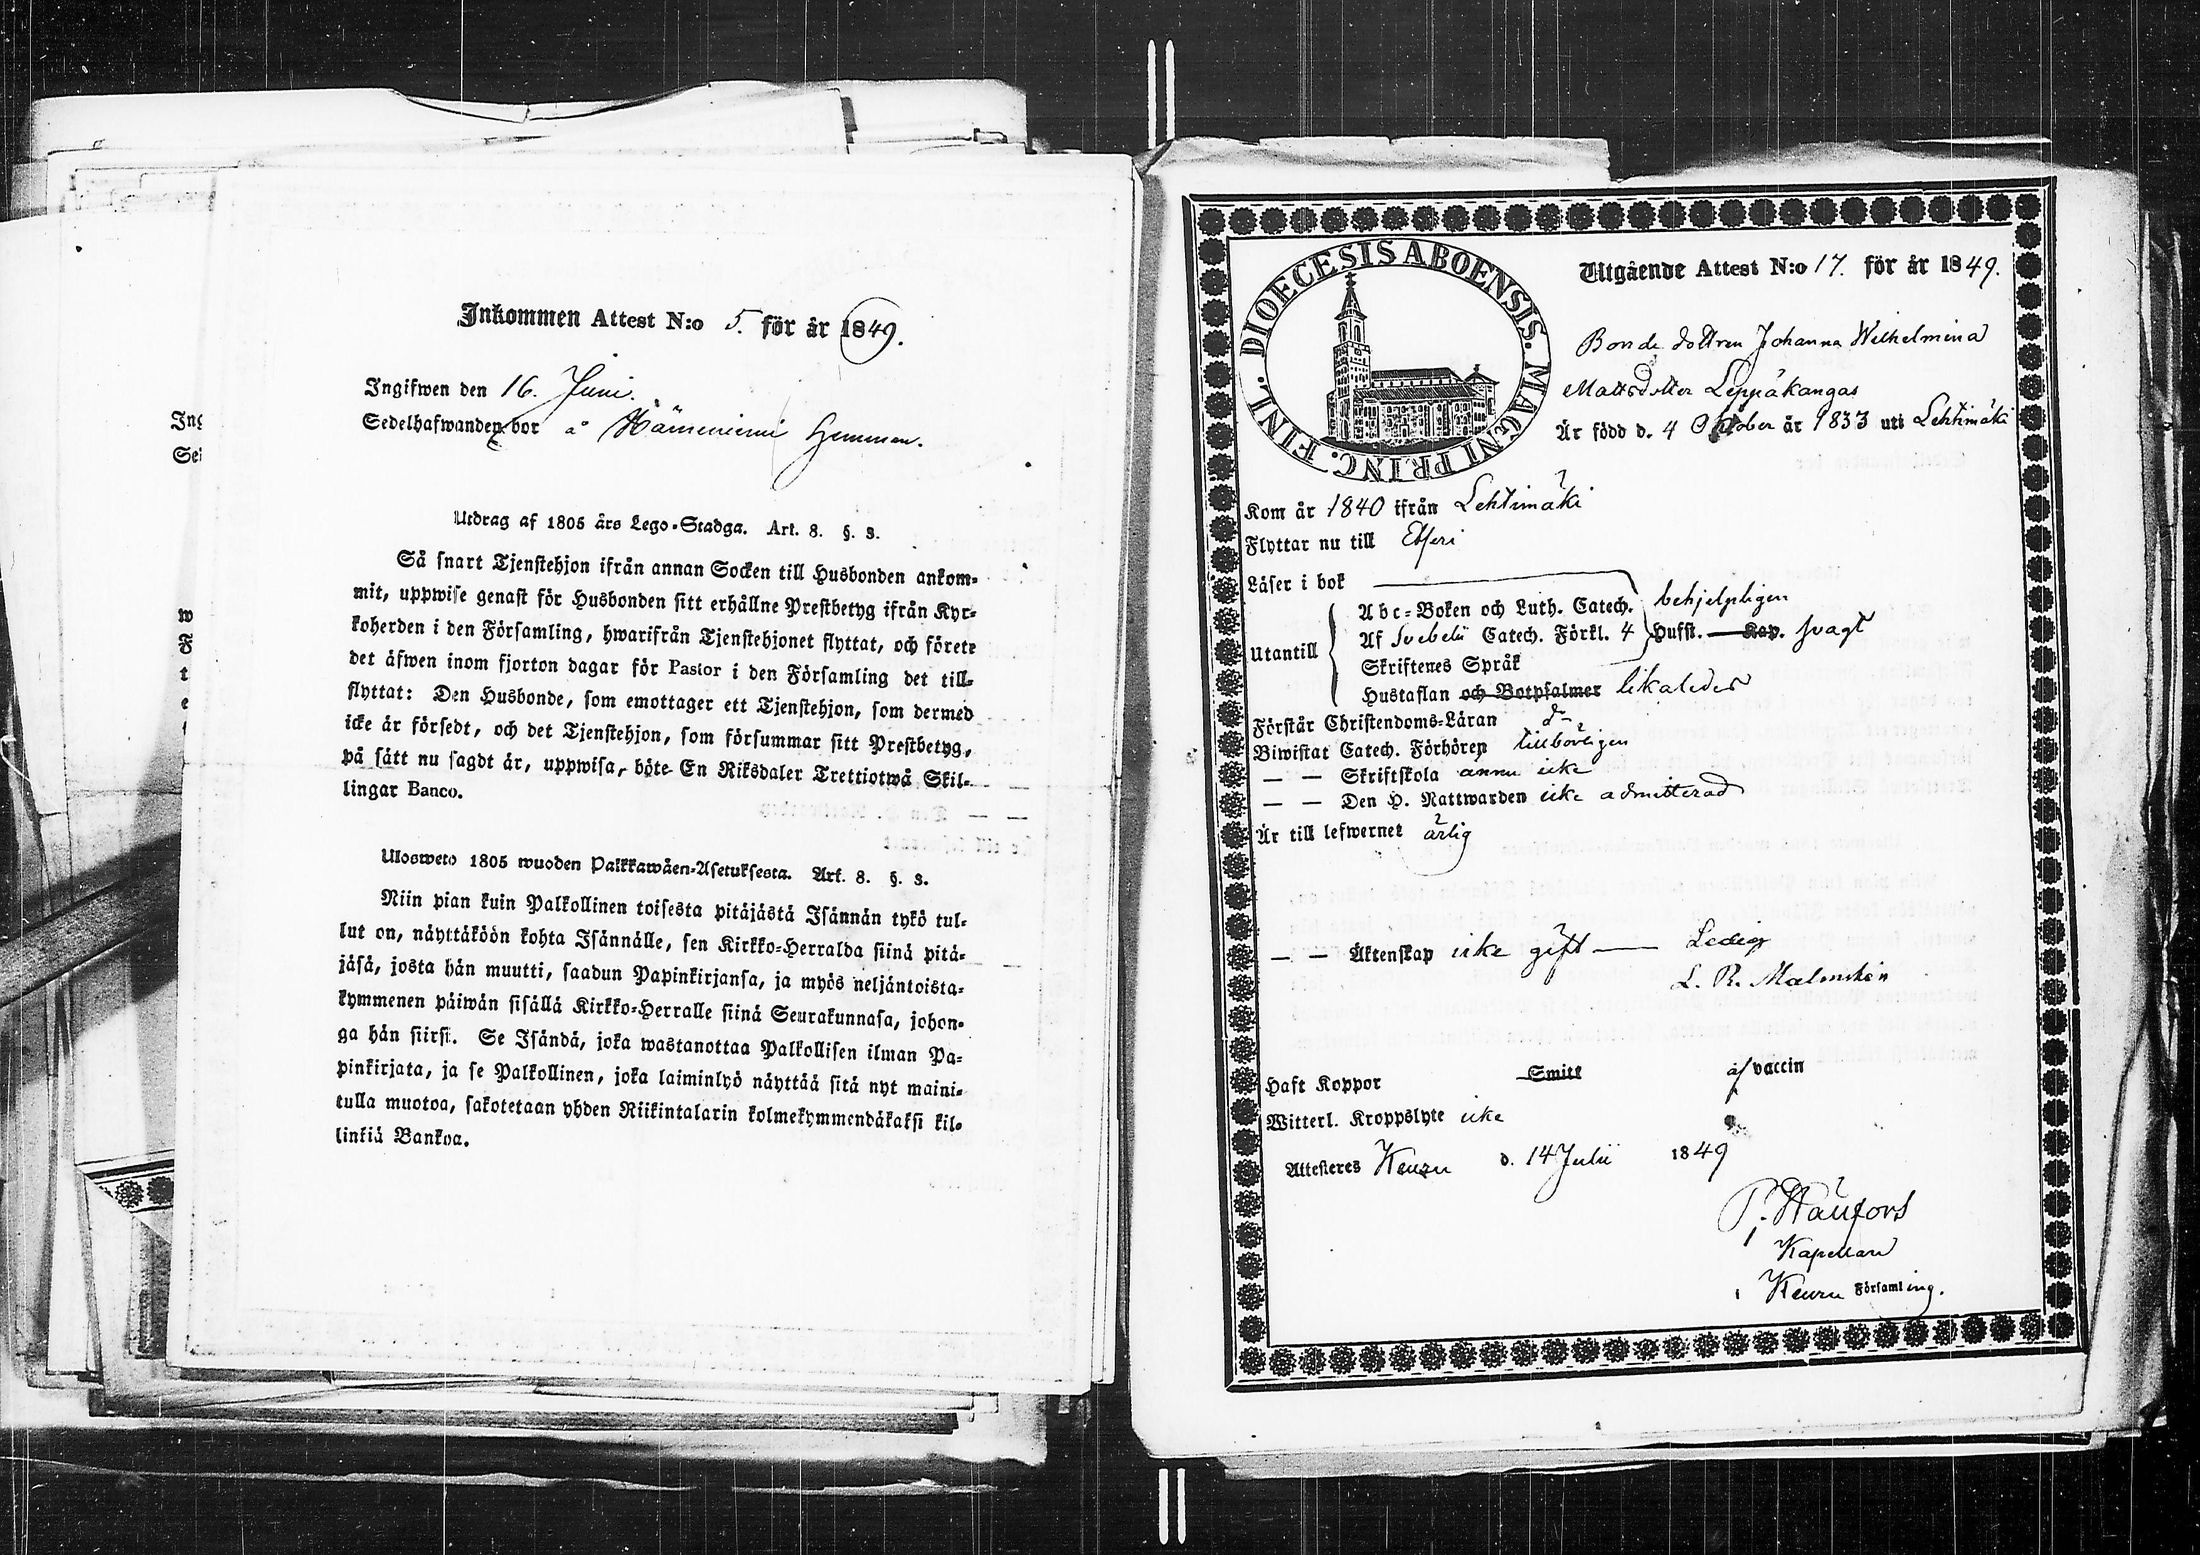 Inkommen Attest N:o 5. för år 1849.
Ingifwen den 16. Juni.
Sedelhafwanden bor å Hämeniemi Hemman.
Utdrag af 1805 års Lego-Stadga. Art. 8. §. 3.
Så snart Tjenstehjon ifrån annan Socken till Husbonden ankom-
mit, uppwise genast för Husbonden sitt erhållne Prestbetyg ifrån Kyr-
koherden i den Församling, hwarifrån Tjenstehjonet flyttat, och förete
det äfwen inom fjorton dagar för Pastor i den Församling det till-
flyttat: Den Husbonde, som emottager ett Tjenstehjon, som dermed
icke är försedt, och det Tjenstehjon, som försummar sitt Prestbetyg,
på sätt nu sagdt är, uppwisa, böte En Riksdaler Trettiotwå Skil-
lingar Banco.
Ulosweto 1805 wuoden Palkkawäen-Asetuksesta. Art. 8. §. 3.
Niin pian kuin Palkollinen toisesta pitäjästä Isännän tykö tul-
lut on, näyttäköön kohta Isännälle, sen Kirkko-Herralda siinä pitä-
jäsä, josta hän muutti, saadun Papinkirjansa, ja myös neljäntoista-
kymmenen päiwän sisällä Kirkko-Herralle siinä Seurakunnasa, johon-
ga hän siirsi. Se Isändä, joka wastanottaa Palkollisen ilman Pa-
pinkirjata, ja se Palkollinen, joka laiminlyö näyttää sitä nyt maini-
tulla muotoa, sakotetaan yhden Riikintalarin kolmekymmendäkaksi kil-
linkiä Bankoa.
Ing
Sed
w
F
t
e
DIOECESIS ABOENSIS. MAGNI PRINC. FINL.
Utgående Attest N:o 17. för år 1849.
Bonde dottren Johanna Wilhelmina
Mattsdotter Leppäkangas
Är född d. 4 Oktober år 1833 uti Lehtimäki
Kom år 1840 ifrån Lehtimäki
Flyttar nu till Etseri
Läser i bok
Utantill
Abc-Boken och Luth. Catech. behjelpligen
Af Svebelii Catech. Förkl. 4 Hufst. Kap. svagt
Skriftenes Språk
Hustaflan och Botpsalmer likaledes
Förstår Christendoms-Läran d-
Biwistat Catech. Förhören tillbörligen
— — Skriftskola ännu icke
— — Den H. Nattwarden icke admitterad
Är till lefwernet ärlig
— — Äktenskap icke gift — Ledig
L. R. Malmstén
Haft Koppor Smitt af vaccin
Witterl. Kroppslyte icke
Attesteres Keuru d. 14 Julii 1849
Kapellan
i Keuru Församling.